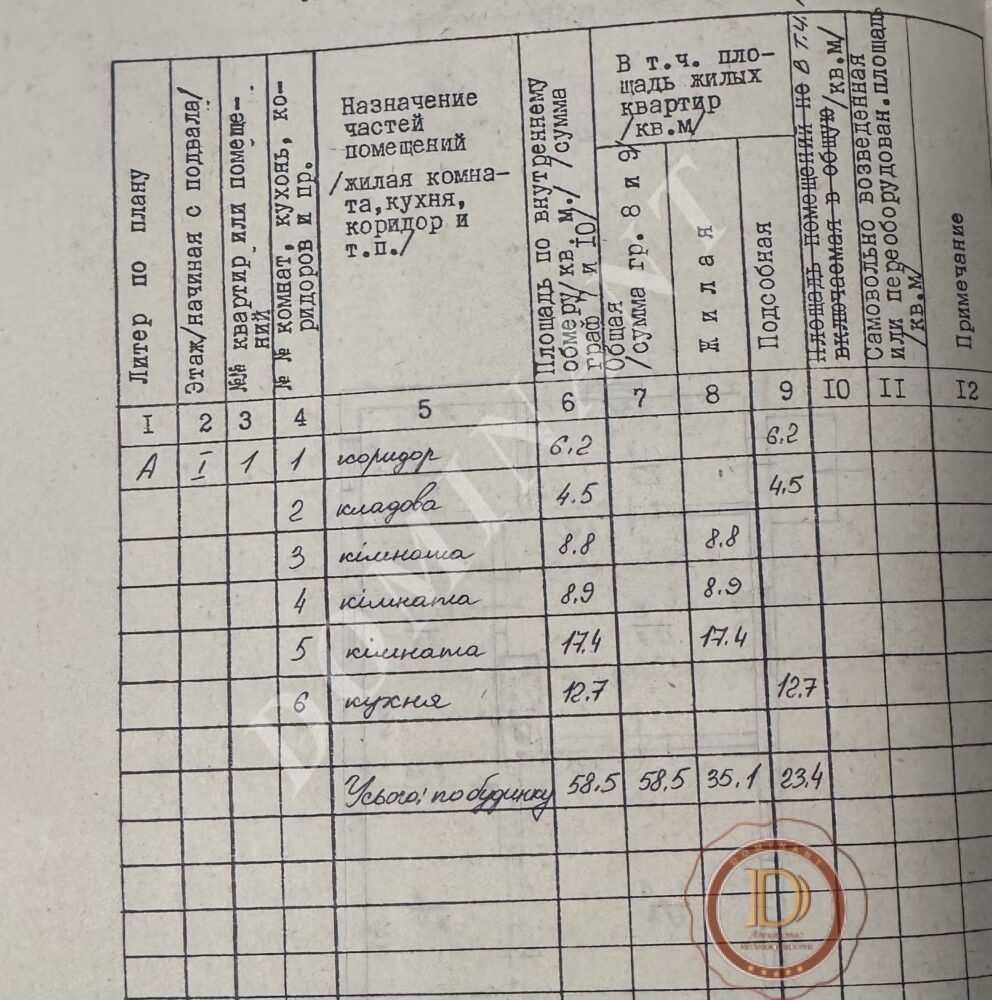 Литер по плану
Этаж/начиная с подвала/
№№ квартир или помеще-
ний
№ № комнат, кухонь, ко-
ридоров и пр.
Назначение
частей
помещений
/жилая комна-
та, кухня,
коридор и
т.п./
Площадь по внутреннему
обмеру/кв. м./ /сумма
граф 7 и 10/
В т.ч. пло-
щадь жилых
квартир
/кв.м/
Общая
/сумма гр. 8 и 9/
Жилая
Подсобная
Площадь помещений не в т.ч.
включаемая в общую/кв.м/
Самовольно возведенная
или переоборудован.площадь
/кв.м/
Примечание
I 2 3 4 5 6 7 8 9 IO II I2
А I 1 1 коридор 6.2 6.2
2 кладова 4.5 4.5
3 кімната 8.8 8.8
4 кімната 8.9 8.9
5 кімната 17.4 17.4
6 кухня 12.7 12.7
Усього: по будинку 58.5 58.5 35.1 23.4
DOMINANT
D